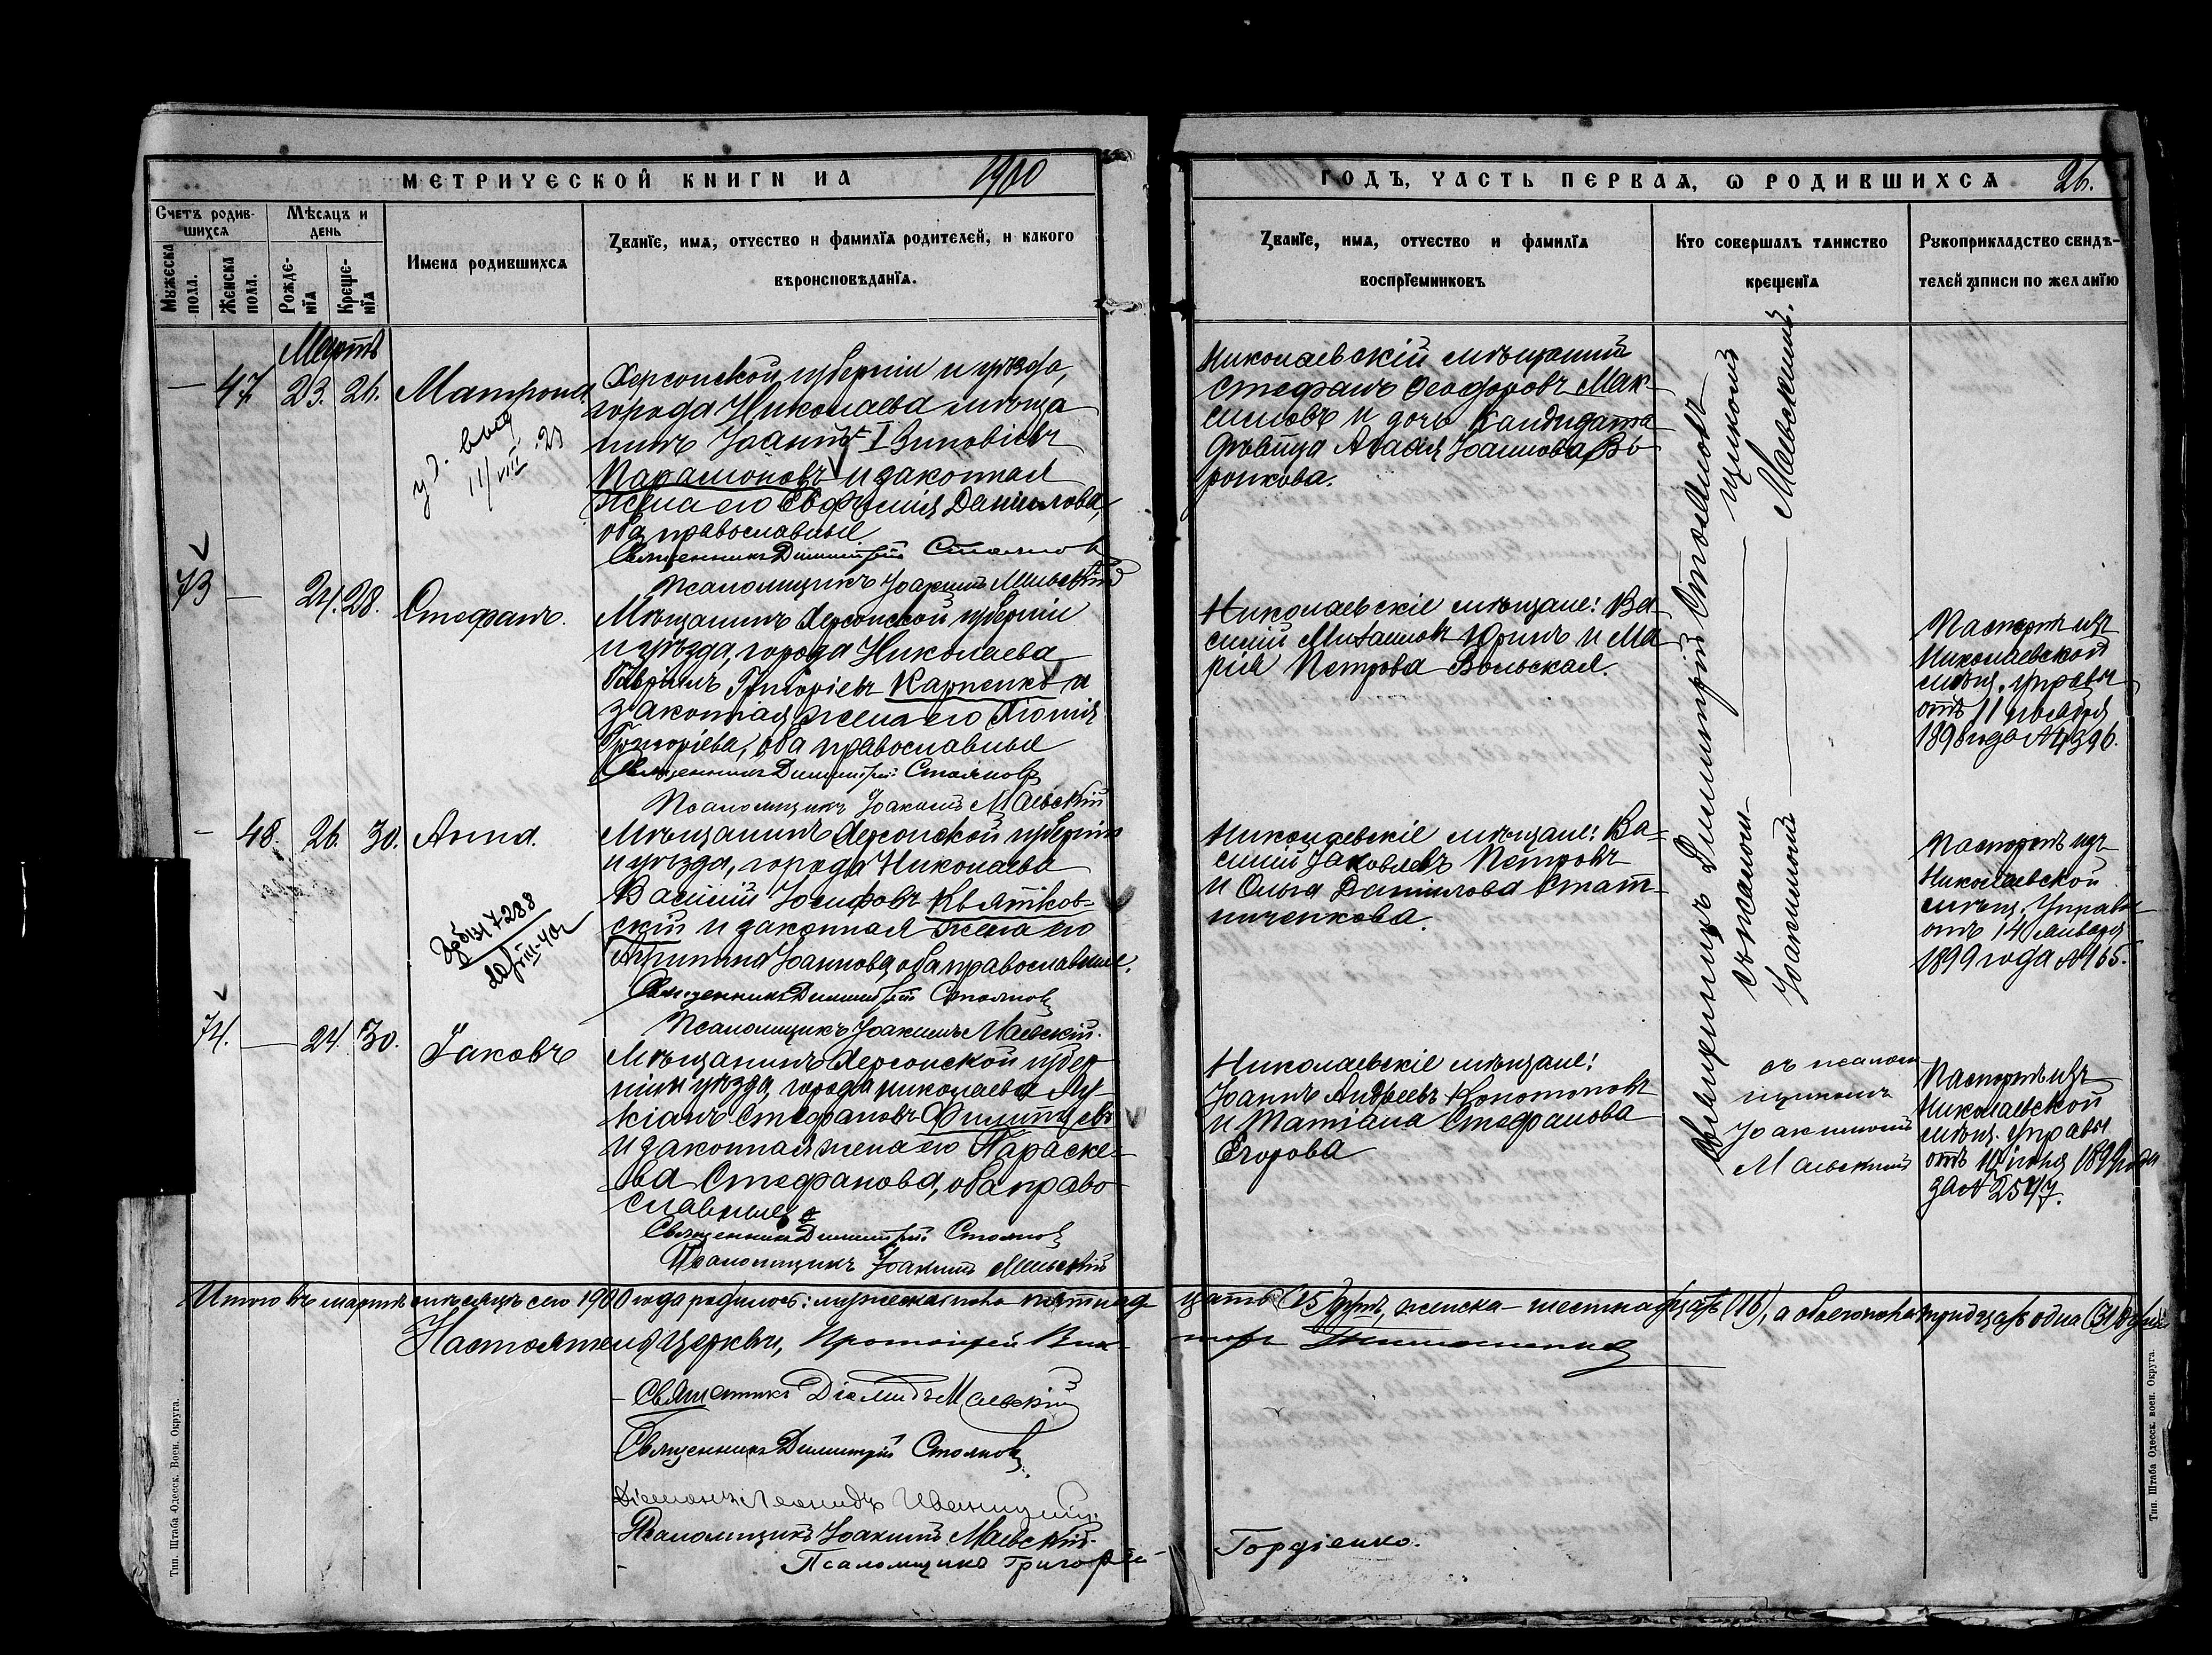 МЕТРИЧЕСКОЙ КНИГИ НА 1900
ГОДЪ, ЧАСТЬ ПЕРВАЯ, Ѡ РОДИВШИХСЯ 26.
Счетъ родив-
шихся
Мужеска
пола.
Женска
пола.
Мѣсяцъ и
день
Рожде-
нія
Креще-
нія
Имена родившихся
Званіе, имя, отчество и фамилія родителей, и какого
вѣроисповѣданія.
Званіе, имя, отчество и фамилія
воспріемниковъ
Кто совершалъ таинство
крещенія
Рукоприкладство свидѣ-
телей записи по желанію
Мартъ
— 47. 23. 26. Матрона
Херсонской губерніи и уѣзда,
города Николаева мѣща
нинъ Іоаннъ Зиновіевъ
Парамоновъ и законная
жена его Евфимія Даніилова,
оба православные
Священникъ Димитрій Стояновъ
Псаломщикъ Іоакимъ Маевскій
Николаевскій мѣщанинъ
Стефанъ Ѳеодоровъ Мак-
симовъ и дочь кандидата
дѣвица Іоаннова Во-
ронкова.
11/VIII 23
73 — 24. 28. Стефанъ.
Мѣщанинъ Херсонской губерніи
и уѣзда, города Николаева
Гавріилъ Григоріевъ Карпенко и
законная жена его
Григоріева, оба православные
Священникъ Димитрій Стояновъ
Псаломщикъ Іоакимъ Маевскій
Николаевскіе мѣщане: Ва-
силій Михаиловъ Юринъ и Ма
рія Петрова Вольская.
Паспортъ изъ
Николаевской
мѣщ. управы
отъ 11 ноября
1898 года № 4396.
— 48. 26. 30. Анна.
Мѣщанинъ Херсонской губерніи
и уѣзда, города Николаева
Василій Іосифовъ Квятков-
скій и законная жена его
Агрипина Іоаннова, оба православные.
Священникъ Димитрій Стояновъ
Псаломщикъ Іоакимъ Маевскій.
Николаевскіе мѣщане: Ва-
силій Іаковлевъ Петровъ
и Ольга Даніилова Стат-
ниченкова.
Паспортъ изъ
Николаевской
мѣщ. Управы
отъ 14 января
1899 года № 165.
74. — 24. 30. Іаковъ
Мѣщанинъ Херсонской губер
ніи и уѣзда, города Николаева Лу-
кіанъ Стефановъ Филипцевъ
и законная жена его Параске-
ва Стефанова, оба право
славные
Священникъ Димитрій Стояновъ
Псаломщикъ Іоакимъ Маевскій
Николаевскіе мѣщане:
Іоаннъ Андреевъ Кононовъ
и Татіана Стефанова
Егорова
Паспортъ изъ
Николаевской
мѣщ. Управы
отъ іюня 1899 года
за № 2547.
Священникъ Димитрій Стояновъ
съ псалом-
щикомъ
Іоакимомъ Маевскимъ.
съ псалом
щикомъ
Іоакимомъ
Маевскимъ
Итого въ мартѣ мѣсяцѣ сего 1900 года родилось: мужеска пола пятнад цать (15) душъ, женска — шестнадцать (16), а обоего пола тридцать одна (31) душа
Настоятель церкви, Протоіерей Вик- торъ
Священникъ Діомидъ Маевскій
Священникъ Димитрій Стояновъ
Діаконъ Леонидъ Иваницкій
Псаломщикъ Іоакимъ Маевскій.
Псаломщикъ Григорій Гордіенко.
Тип. Штаба Одесск. Воен. Округа.
Тип. Штаба Одесск. воен. Округа.